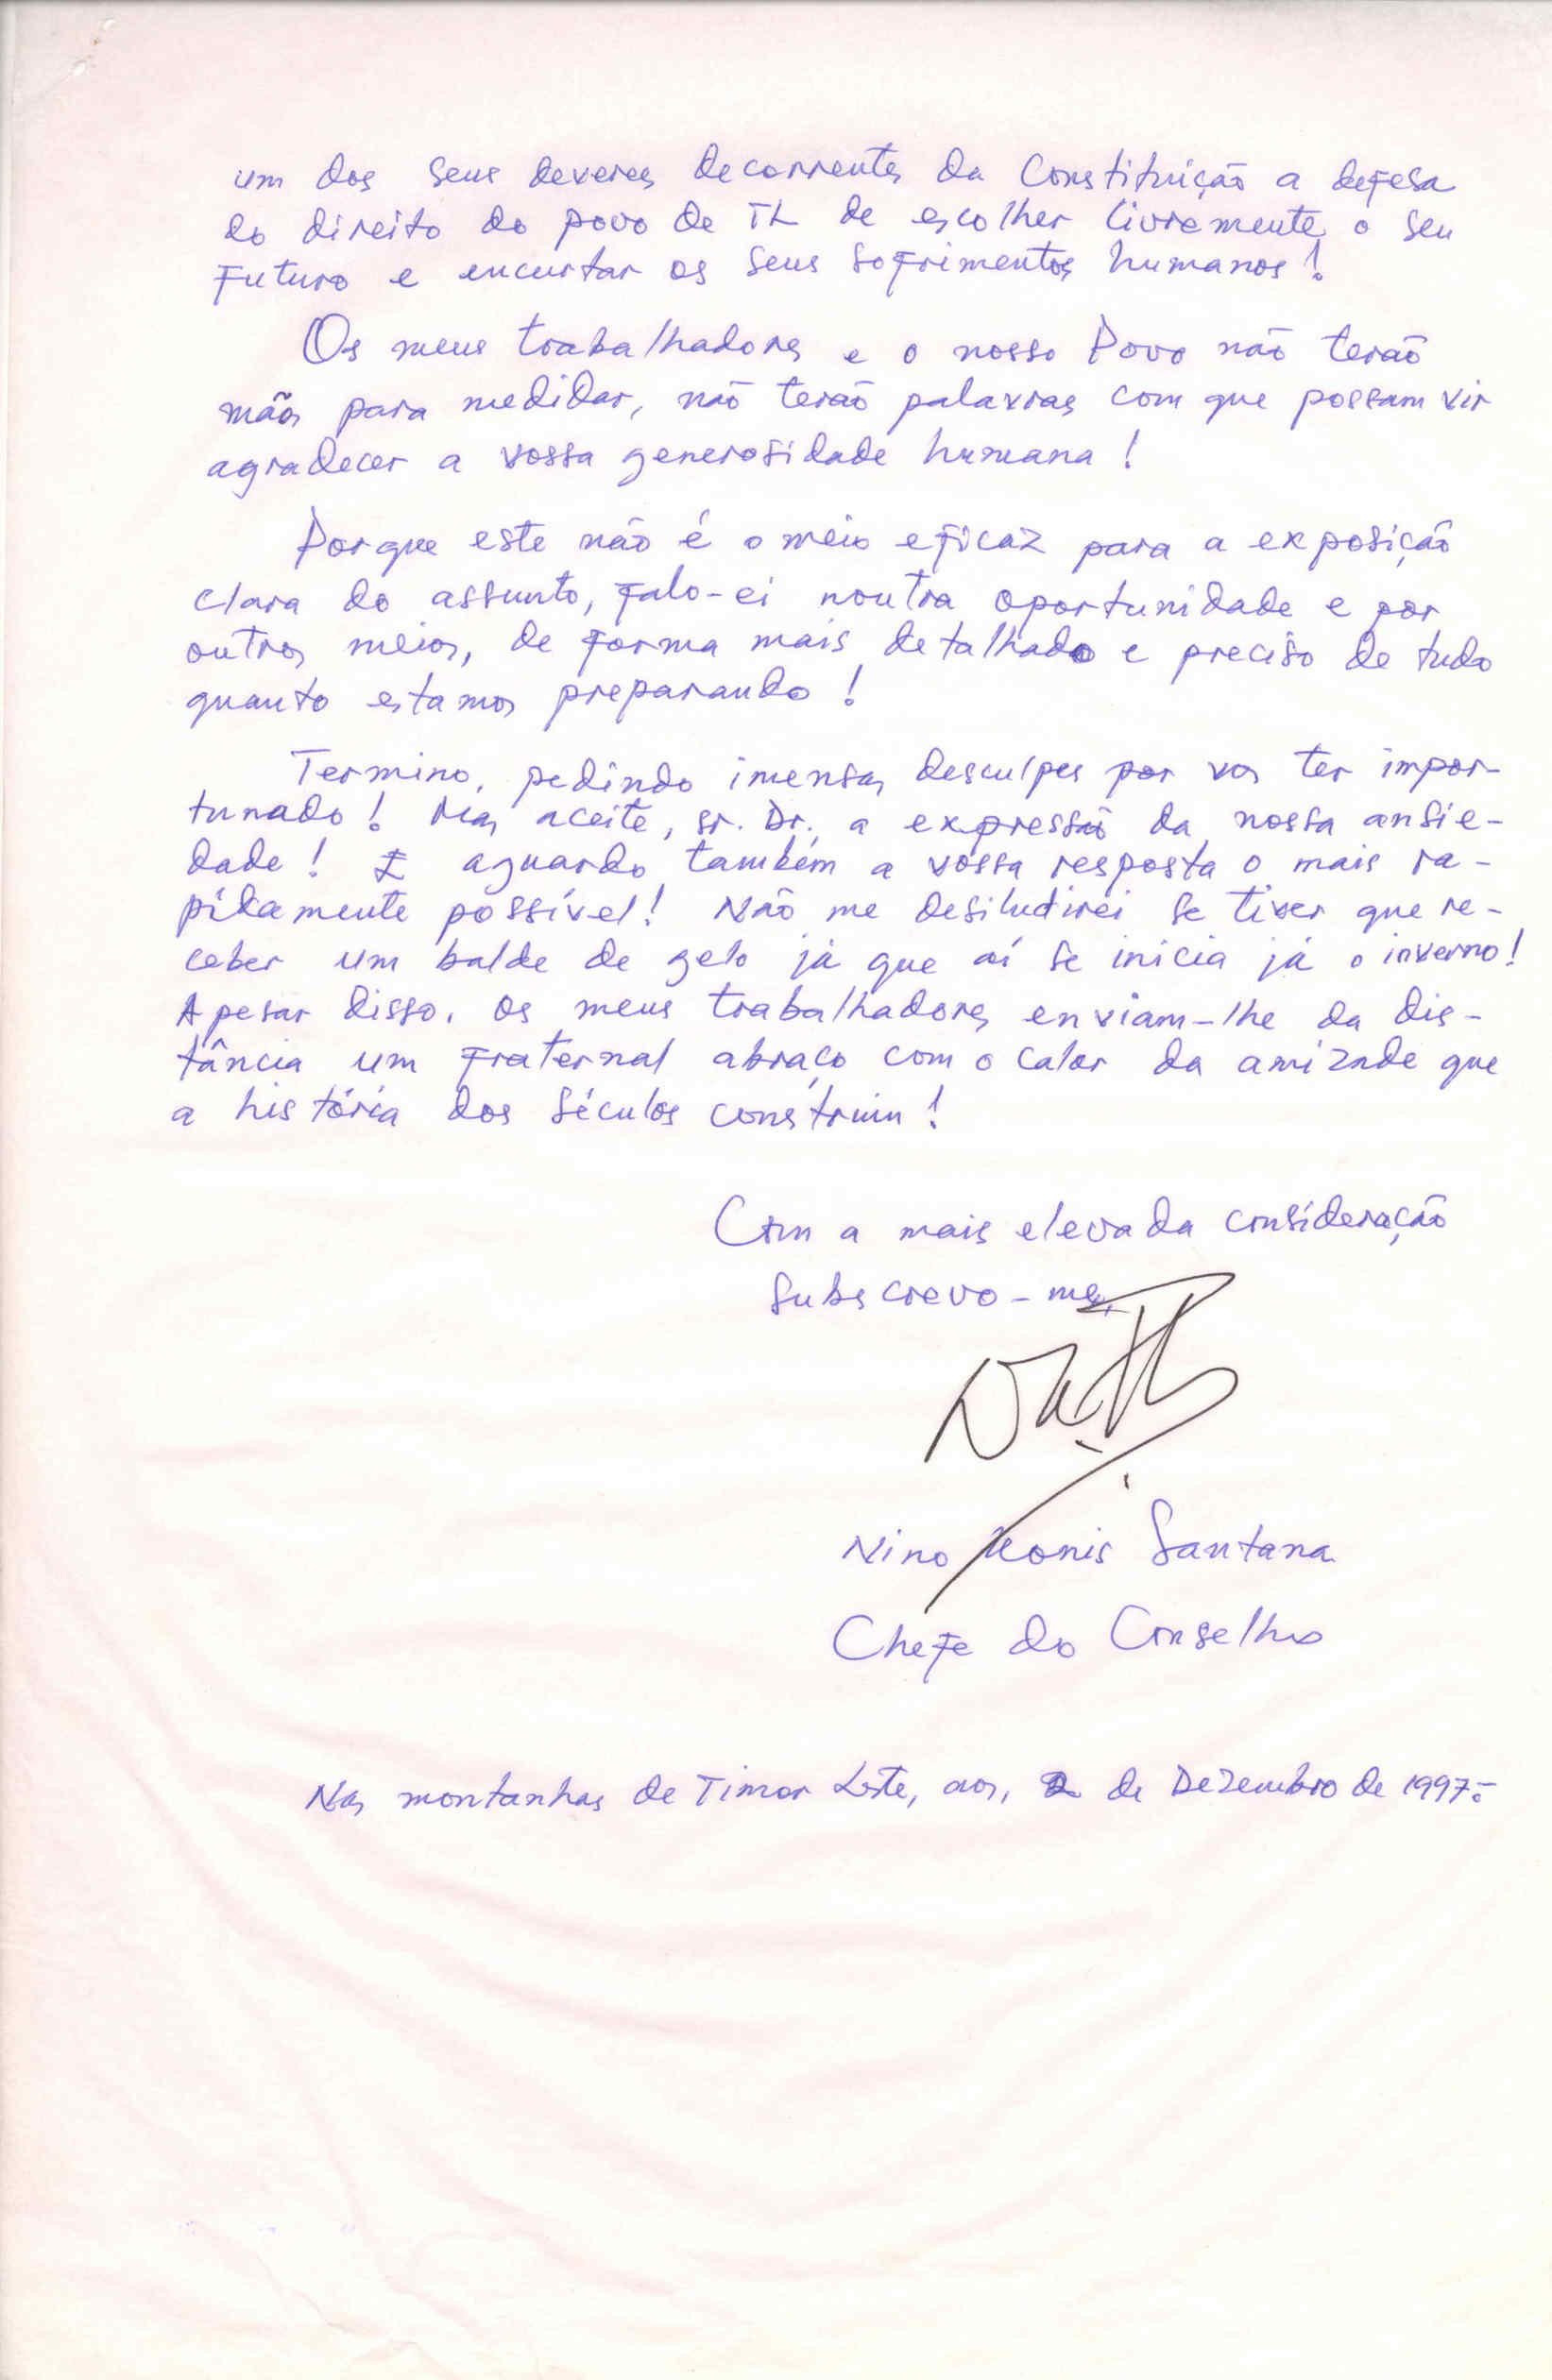 um dos seus deveres decorrentes da Constituição a defesa
do direito do povo de TL de escolher livremente o seu
futuro e encurtar os seus sofrimentos humanos!
Os meus trabalhadores e o nosso Povo não terão
mãos para medidar, não terão palavras com que possam vir
agradecer a vossa generosidade humana!
Porque este não é o meio eficaz para a exposição
clara do assunto, falo-ei noutra oportunidade e por
outros meios, de forma mais detalhado e preciso de tudo
quanto estamos preparando!
Termino, pedindo imensas desculpes por vos ter impor-
tunado! Mas aceite, sr. Dr., a expressão da nossa ansie-
dade! E aguardo também a vossa resposta o mais ra-
pidamente possível! Não me desiludirei se tiver que re-
ceber um balde de gelo já que aí se inicia já o inverno!
Apesar disso, os meus trabalhadores enviam-lhe da dis-
tância um fraternal abraço com o calor da amizade que
a história dos séculos construiu!
Com a mais elevada consideração
Subscrevo-me,
Nino Konis Santana
Chefe do Conselho
Nas montanhas de Timor Leste, aos, 2 de Dezembro de 1997.-